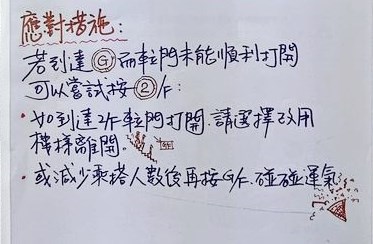 應對措施:
若到達 G 而𨋢門未能順利打開
可以嘗試按 2/F:
• 如到達2/F𨋢門打開.請選擇改用
樓梯離開.
• 或減少乘搭人數後再按G/F.碰碰運氣